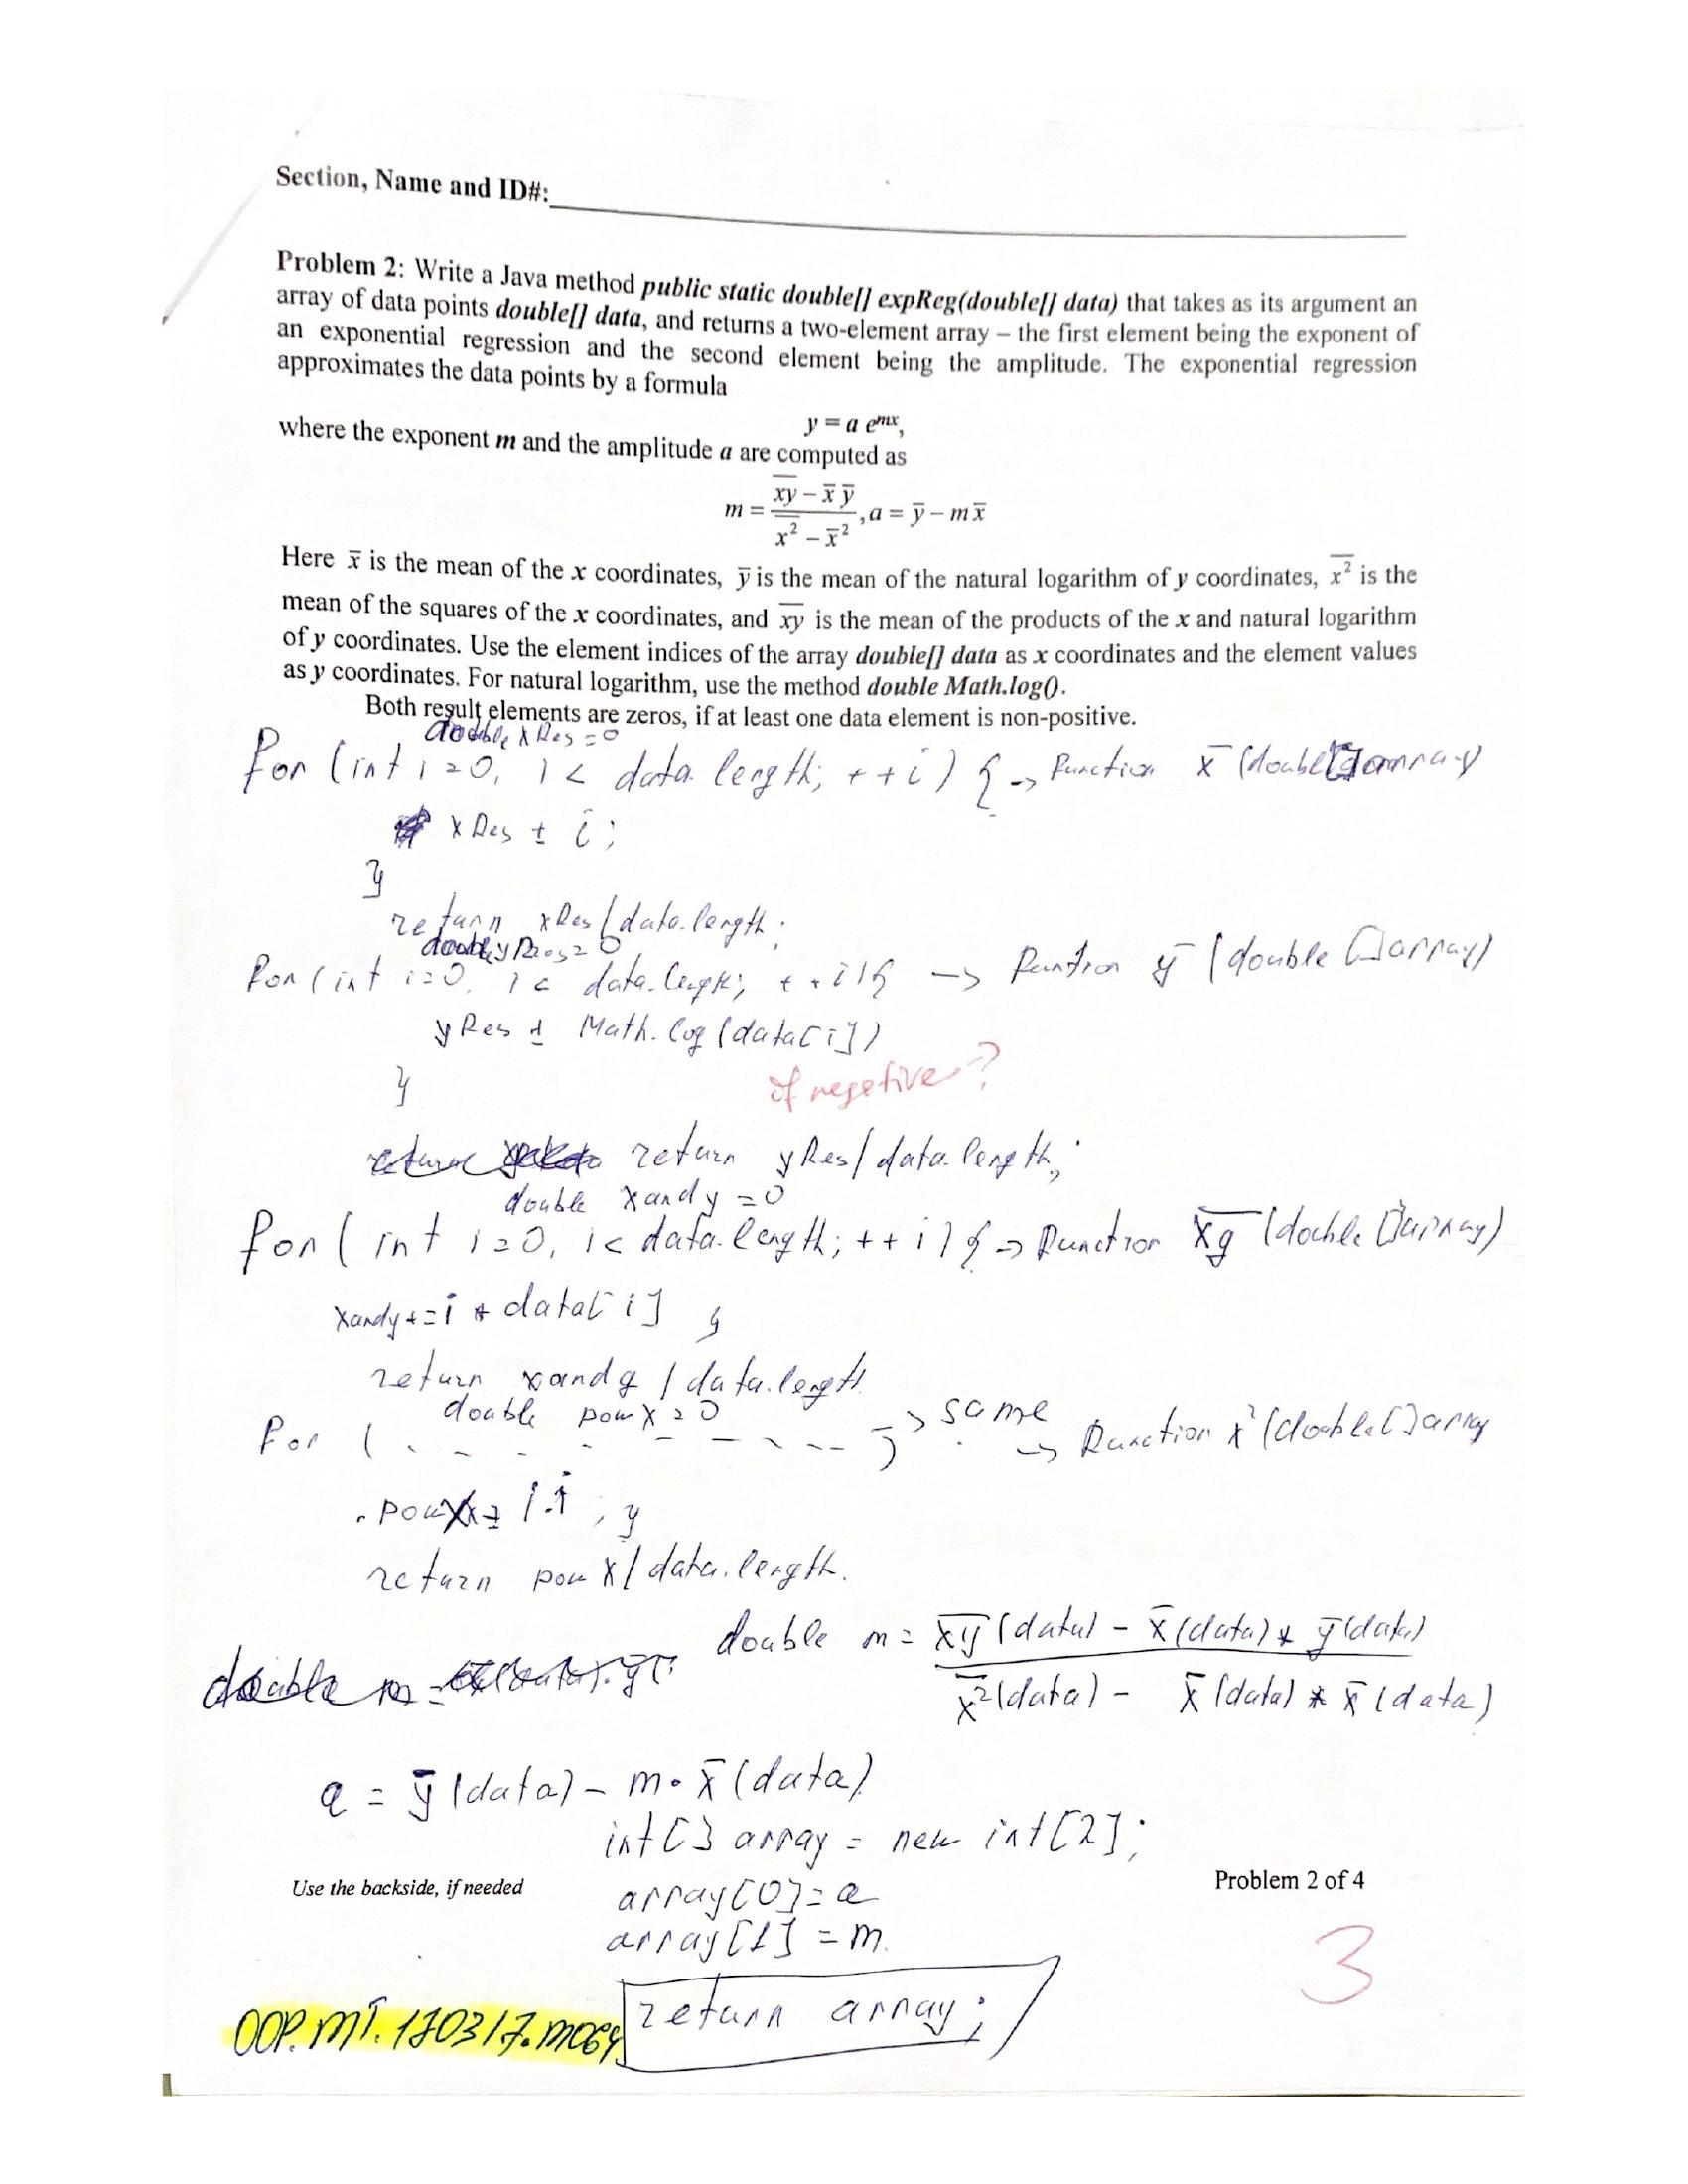 Section, Name and ID#:
Problem 2: Write a Java method public static double[] expReg(double[] data) that takes as its argument an
array of data points double[] data, and returns a two-element array – the first element being the exponent of
an exponential regression and the second element being the amplitude. The exponential regression
approximates the data points by a formula
y = a e^{mx},
where the exponent m and the amplitude a are computed as
m = (\overline{xy} – x̄ ȳ) / (\overline{x²} – x̄²), a = ȳ – m x̄
Here x̄ is the mean of the x coordinates, ȳ is the mean of the natural logarithm of y coordinates, \overline{x²} is the
mean of the squares of the x coordinates, and \overline{xy} is the mean of the products of the x and natural logarithm
of y coordinates. Use the element indices of the array double[] data as x coordinates and the element values
as y coordinates. For natural logarithm, use the method double Math.log().
Both result elements are zeros, if at least one data element is non-positive.
double xRes = 0
for (int i = 0, i < data.length; ++i) { -> function x̄ (double[] array)
xRes += i;
}
return xRes/data.length;
double yRes = 0
for (int i = 0, i < data.length; ++i) { -> function ȳ (double []array)
yRes += Math.log(data[i])
}
if negative?
return yRes/data.length;
double xandy = 0
for (int i = 0, i < data.length; ++i) { -> function \overline{xy} (double []array)
xandy += i * data[i] }
return xandy / data.length
double powX = 0
for ( - - - - - - - ) -> same -> function x² (double[] array
powX += i·i ; }
return powX/data.length.
double m = (\overline{xy}(data) - x̄(data) * ȳ(data)) / (\overline{x²}(data) - x̄(data) * x̄(data))
a = ȳ(data) - m · x̄(data)
int[] array = new int[2];
Use the backside, if needed
Problem 2 of 4
array[0] = a
array[1] = m.
3
return array;
OOP.MT.170317.M064